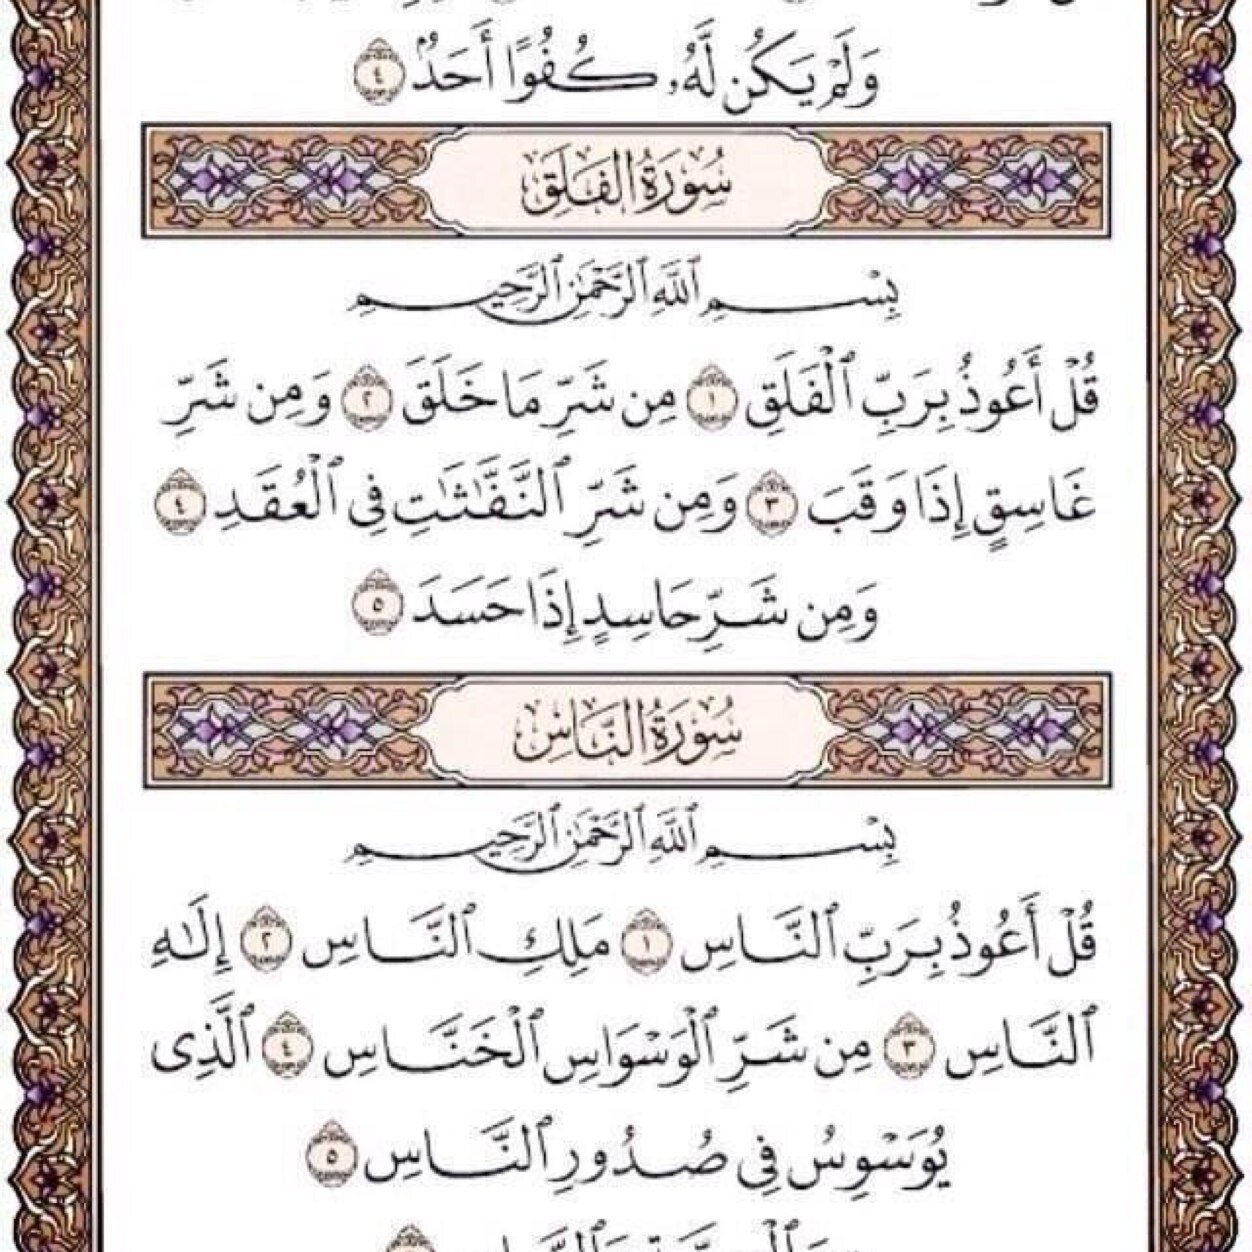 وَلَمْ يَكُن لَّهُۥ كُفُوًا أَحَدٌۢ ٤
سُورَةُ الفَلَقِ
بِسْمِ ٱللَّهِ ٱلرَّحْمَٰنِ ٱلرَّحِيمِ
قُلْ أَعُوذُ بِرَبِّ ٱلْفَلَقِ ١ مِن شَرِّ مَا خَلَقَ ٢ وَمِن شَرِّ
غَاسِقٍ إِذَا وَقَبَ ٣ وَمِن شَرِّ ٱلنَّفَّٰثَٰتِ فِى ٱلْعُقَدِ ٤
وَمِن شَرِّ حَاسِدٍ إِذَا حَسَدَ ٥
سُورَةُ النَّاسِ
بِسْمِ ٱللَّهِ ٱلرَّحْمَٰنِ ٱلرَّحِيمِ
قُلْ أَعُوذُ بِرَبِّ ٱلنَّاسِ ١ مَلِكِ ٱلنَّاسِ ٢ إِلَٰهِ
ٱلنَّاسِ ٣ مِن شَرِّ ٱلْوَسْوَاسِ ٱلْخَنَّاسِ ٤ ٱلَّذِى
يُوَسْوِسُ فِى صُدُورِ ٱلنَّاسِ ٥